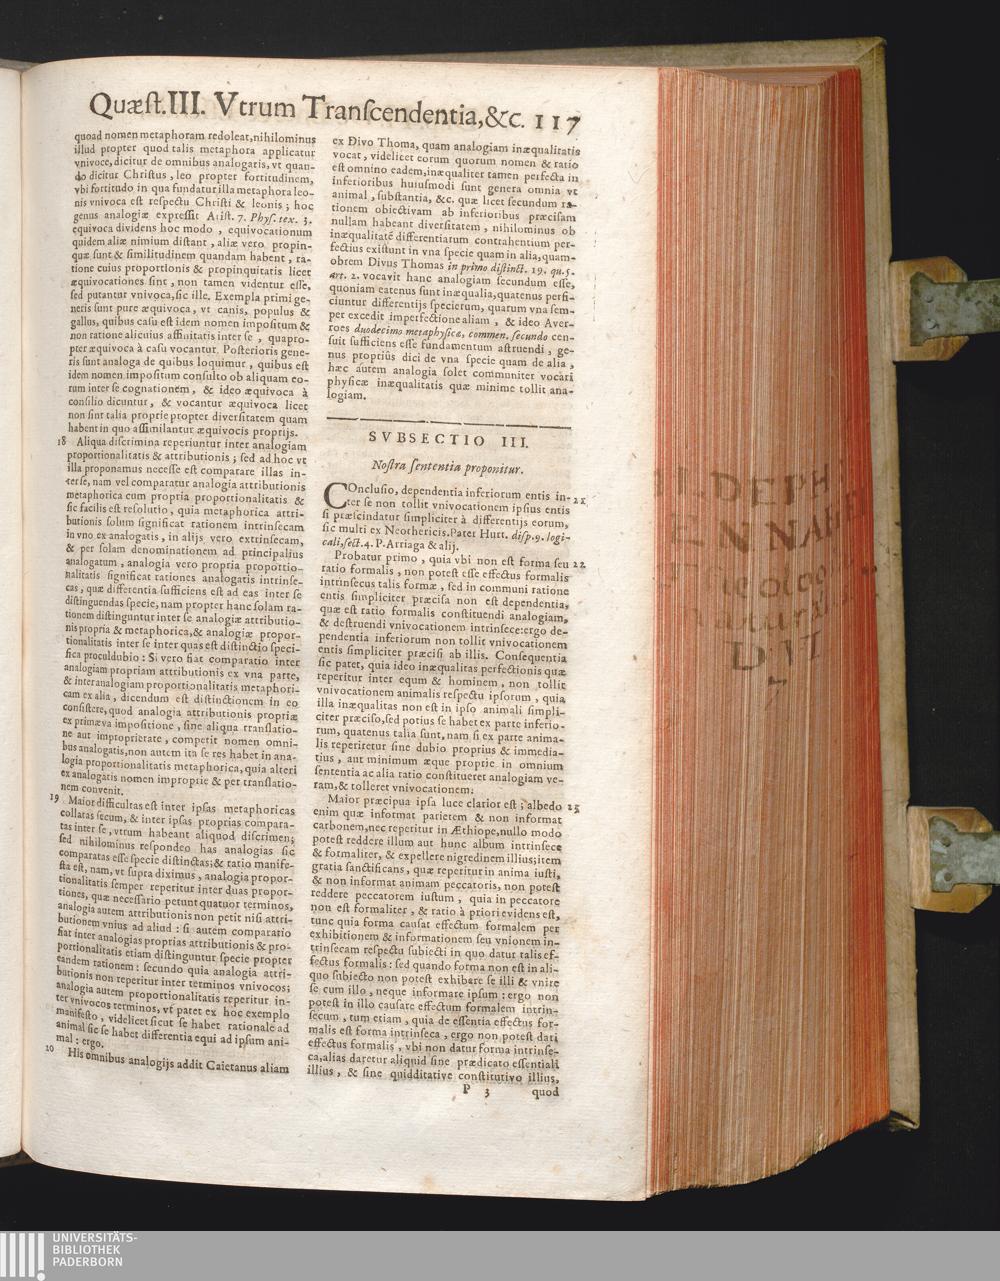 Quæst.III. Vtrum Transcendentia,&c. 117
quoad nomen metaphoram redoleat,nihilominus
illud propter quod talis metaphora applicatur
vnivoce,dicitur de omnibus analogatis,vt quan-
do dicitur Christus , leo propter fortitudinem,
vbi fortitudo in qua fundatur illa metaphora leo-
nis vnivoca est respectu Christi & leonis ; hoc
genus analogiæ expressit Arist. 7. Phys. tex. 3.
equivoca dividens hoc modo , equivocationum
quidem aliæ nimium distant , aliæ vero propin-
quæ sunt & similitudinem quandam habent , ra-
tione cuius proportionis & propinquitatis licet
æquivocationes sint , non tamen videntur esse,
sed putantur vnivoca,sic ille. Exempla primi ge-
neris sunt pure æquivoca , vt canis, populus &
gallus, quibus casu est idem nomen impositum &
non ratione alicuius affinitatis inter se , quapro-
pter æquivoca à casu vocantur. Posterioris gene-
ris sunt analoga de quibus loquimur , quibus est
idem nomen impositum consulto ob aliquam eo-
rum inter se cognationem, & ideo æquivoca à
consilio dicuntur, & vocantur æquivoca licet
non sint talia proprie propter diversitatem quam
habent in quo assimilantur æquivocis proprijs.
18 Aliqua discrimina reperiuntur inter analogiam
proportionalitatis & attributionis ; sed ad hoc vt
illa proponamus necesse est comparare illas in-
ter se, nam vel comparatur analogia attributionis
metaphorica cum propria proportionalitatis &
sic facilis est resolutio , quia metaphorica attri-
butionis solum significat rationem intrinsecam
in vno ex analogatis , in alijs vero extrinsecam,
& per solam denominationem ad principalius
analogatum , analogia vero propria proportio-
nalitatis significat rationes analogatis intrinse-
cas , quæ differentia sufficiens est ad eas inter se
distinguendas specie, nam propter hanc solam ra-
tionem distinguntur inter se analogiæ attributio-
nis propria & metaphorica,& analogiæ propor-
tionalitatis inter se inter quas est distinctio speci-
fica proculdubio : Si vero fiat comparatio inter
analogiam propriam attributionis ex vna parte,
& inter analogiam proportionalitatis metaphori-
cam ex alia , dicendum est distinctionem in eo
consistere, quod analogia attributionis propriæ
ex primæva impositione , sine aliqua translatio-
ne aut improprietate , competit nomen omni-
bus analogatis,non autem ita se res habet in ana-
logia proportionalitatis metaphorica, quia alteri
ex analogatis nomen improprie & per translatio-
nem convenit.
19 Maior difficultas est inter ipsas metaphoricas
collatas secum, & inter ipsas proprias compara-
tas inter se , vtrum habeant aliquod discrimen;
sed nihilominus respondeo has analogias sic
comparatas esse specie distinctas;& ratio manife-
sta est, nam, vt supra diximus , analogia propor-
tionalitatis semper reperitur inter duas propor-
tiones, quæ necessario petunt quatuor terminos,
analogia autem attributionis non petit nisi attri-
butionem vnius ad aliud : si autem comparatio
fiat inter analogias proprias attributionis & pro-
portionalitatis etiam distinguntur specie propter
eandem rationem : secundo quia analogia attri-
butionis non reperitur inter terminos vnivocos;
analogia autem proportionalitatis reperitur in-
ter vnivocos terminos, vt patet ex hoc exemplo
manifesto , videlicet sicut se habet rationale ad
animal sic se habet differentia equi ad ipsum ani-
mal : ergo.
20 His omnibus analogijs addit Caietanus aliam
ex Divo Thoma, quam analogiam inæqualitatis
vocat , videlicet eorum quorum nomen & ratio
est omnino eadem,inæqualiter tamen perfecta in
inferioribus huiusmodi sunt genera omnia vt
animal , substantia, &c. quæ licet secundum ra-
tionem obiectivam ab inferioribus præcisam
nullam habeant diversitatem , nihilominus ob
inæqualitatē differentiarum contrahentium per-
fectius existunt in vna specie quam in alia,quam-
obrem Divus Thomas in primo distinct. 19. qu.5.
art. 2. vocavit hanc analogiam secundum esse,
quoniam eatenus sunt inæqualia,quatenus perfi-
ciuntur differentijs specierum, quarum vna sem-
per excedit imperfectione aliam , & ideo Aver-
roes duodecimo metaphysicæ, commen. secundo cen-
suit sufficiens esse fundamentum astruendi , ge-
nus proprius dici de vna specie quam de alia ,
hæc autem analogia solet communiter vocari
physicæ inæqualitatis quæ minime tollit ana-
logiam.
SVBSECTIO III.
Nostra sententia proponitur.
COnclusio, dependentia inferiorum entis in- 21
ter se non tollit vnivocationem ipsius entis
si præscindatur simpliciter à differentijs eorum,
sic multi ex Neothericis.Pater Hurt. disp.9. logi-
cali,sect.4. P.Arriaga & alij.
Probatur primo , quia vbi non est forma seu 22
ratio formalis , non potest esse effectus formalis
intrinsecus talis formæ , sed in communi ratione
entis simpliciter præcisa non est dependentia,
quæ est ratio formalis constituendi analogiam,
& destruendi vnivocationem intrinsece:ergo de-
pendentia inferiorum non tollit vnivocationem
entis simpliciter præcisi ab illis. Consequentia
sic patet, quia ideo inæqualitas perfectionis quæ
reperitur inter equm & hominem , non tollit
vnivocationem animalis respectu ipsorum , quia
illa inæqualitas non est in ipso animali simpli-
citer præciso,sed potius se habet ex parte inferio-
rum, quatenus talia sunt, nam si ex parte anima-
lis reperiretur sine dubio proprius & immedia-
tius , aut minimum æque proprie in omnium
sententia ac alia ratio constitueret analogiam ve-
ram,& tolleret vnivocationem.
Maior præcipua ipsa luce clarior est ; albedo 23
enim quæ informat parietem & non informat
carbonem,nec reperitur in Æthiope,nullo modo
potest reddere illum aut hunc album intrinsece
& formaliter, & expellere nigredinem illius;item
gratia sanctificans, quæ reperitur in anima iusti,
& non informat animam peccatoris, non potest
reddere peccatorem iustum , quia in peccatore
non est formaliter , & ratio à priori evidens est,
tunc quia forma causat effectum formalem per
exhibitionem & informationem seu vnionem in-
trinsecam respectu subiecti in quo datur talis ef-
fectus formalis : sed quando forma non est in ali-
quo subiecto non potest exhibere se illi & vnire
se cum illo , neque informare ipsum : ergo non
potest in illo causare effectum formalem intrin-
secum , tum etiam , quia de essentia effectus for-
malis est forma intrinseca , ergo non potest dari
effectus formalis , vbi non datur forma intrinse-
ca,alias daretur aliquid sine prædicato essentiali
illius , & sine quidditative constitutivo illius,
P 3 quod
UNIVERSITÄTS-
BIBLIOTHEK
PADERBORN